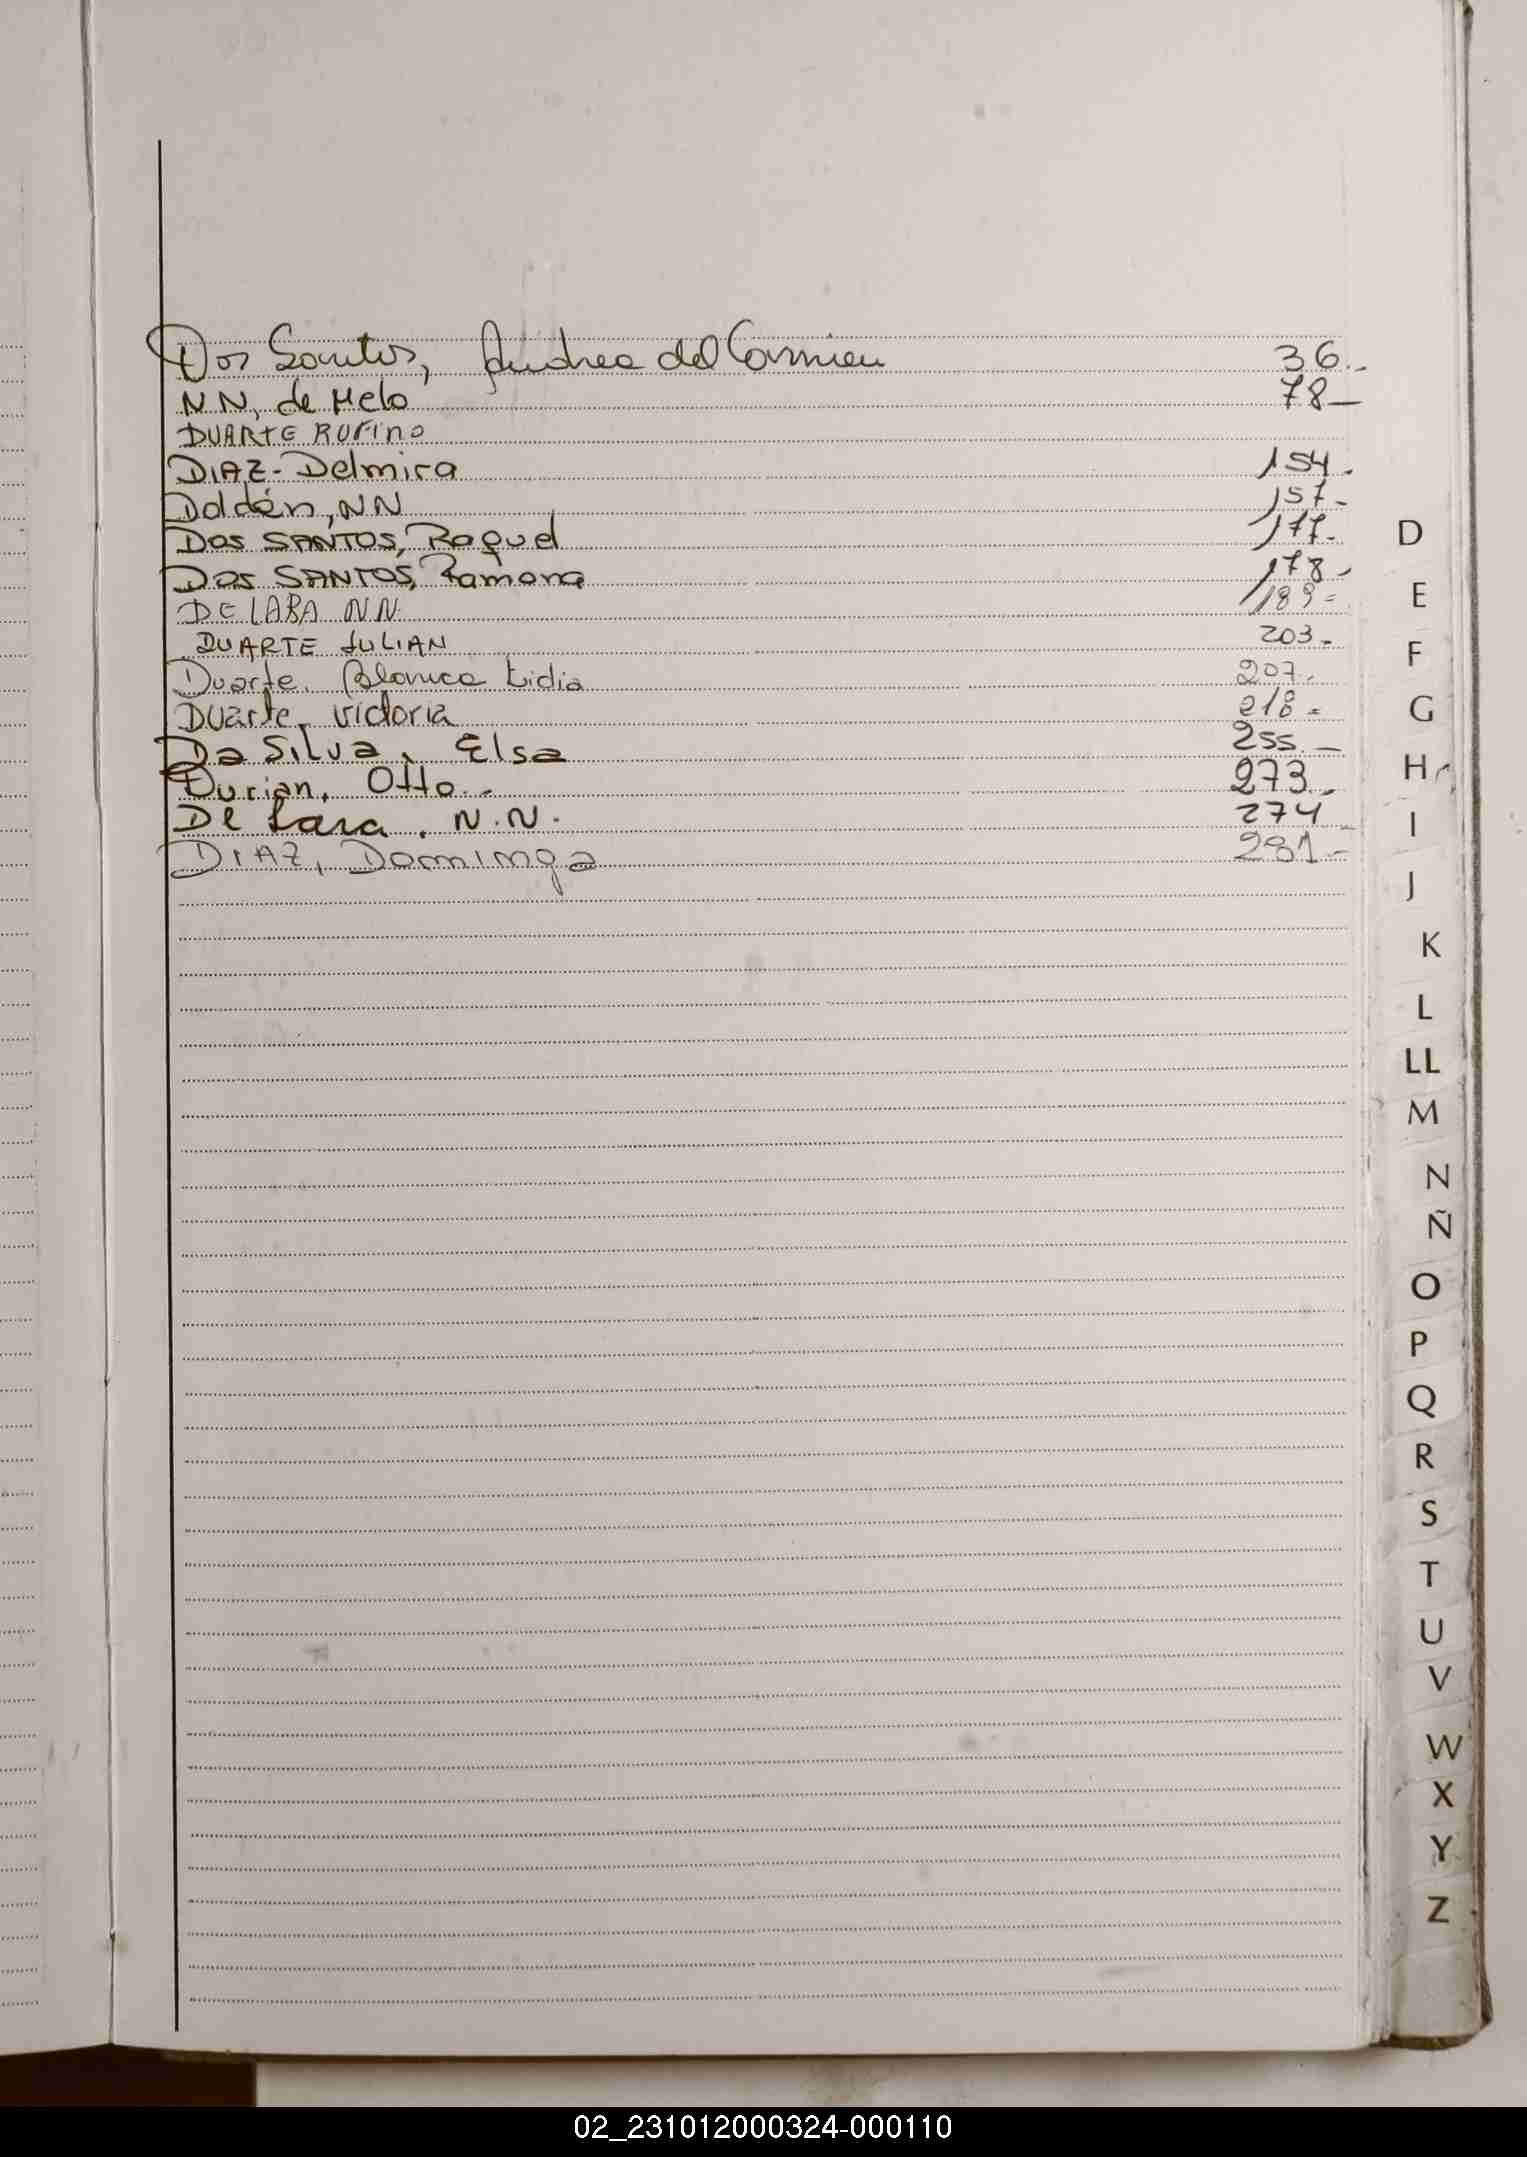 Dos Santos, Andrea del Carmen 36.-
NN, de Melo 78-
DUARTE RUFINO
DIAZ- Delmira 154.
Doldén, NN 157-
Dos SANTOS, Raquel 177-
Dos SANTOS, Ramona 178-
DE LARA NN. 189=
DUARTE JULIAN 203-
Duarte, Blanca Lidia 207.
Duarte, Victoria 218-
Da Silva, Elsa 255.-
Durian, Otto.- 273.-
De Lara, N.N. 274-
DIAZ, Dominga 281-
D
E
F
G
H
I
J
K
L
LL
M
N
Ñ
O
P
Q
R
S
T
U
V
W
X
Y
Z
02_231012000324-000110